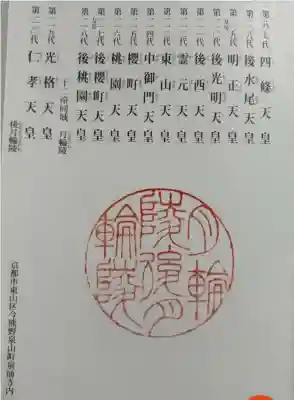 第八七代 四條天皇
第一〇八代 後水尾天皇
第一〇九代 明正天皇
第一一〇代 後光明天皇
第一一一代 後西天皇
第一一二代 霊元天皇
第一一三代 東山天皇
第一一四代 中御門天皇
第一一五代 櫻町天皇
第一一六代 桃園天皇
第一一七代 後櫻町天皇
第一一八代 後桃園天皇
十二帝同域 月輪陵
第一一九代 光格天皇
第一二〇代 仁孝天皇
後月輪陵
月輪
陵後月
輪陵
京都市東山区今熊野泉山町泉涌寺内